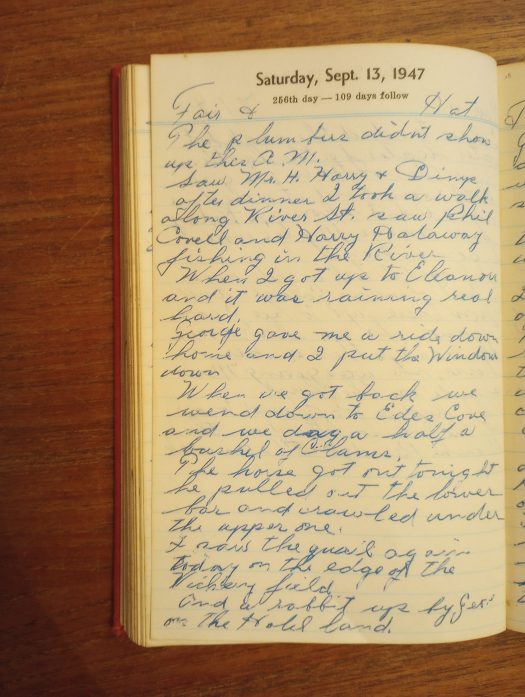 Saturday, Sept. 13, 1947
256th day — 109 days follow
Fair & Hot
The plumbers didn't show
up this A.M.
Saw Mr. H. Harry & Dinys
after dinner I took a walk
along River St. saw Phil
Covell and Harry Hataway
fishing in the River
When I got up to Eleanor
and it was raining real
hard.
George gave me a ride down
home and I put the Window
down
When we got back we
wend down to Edes Cove
and we dug a half a
bushel of Clams.
The horse got out tonight
he pulled out the lower
bar and crawled under
the upper one.
I saw the quail again
today on the edge of the
Vickery field
and a rabbit up by
on the Hotel land.